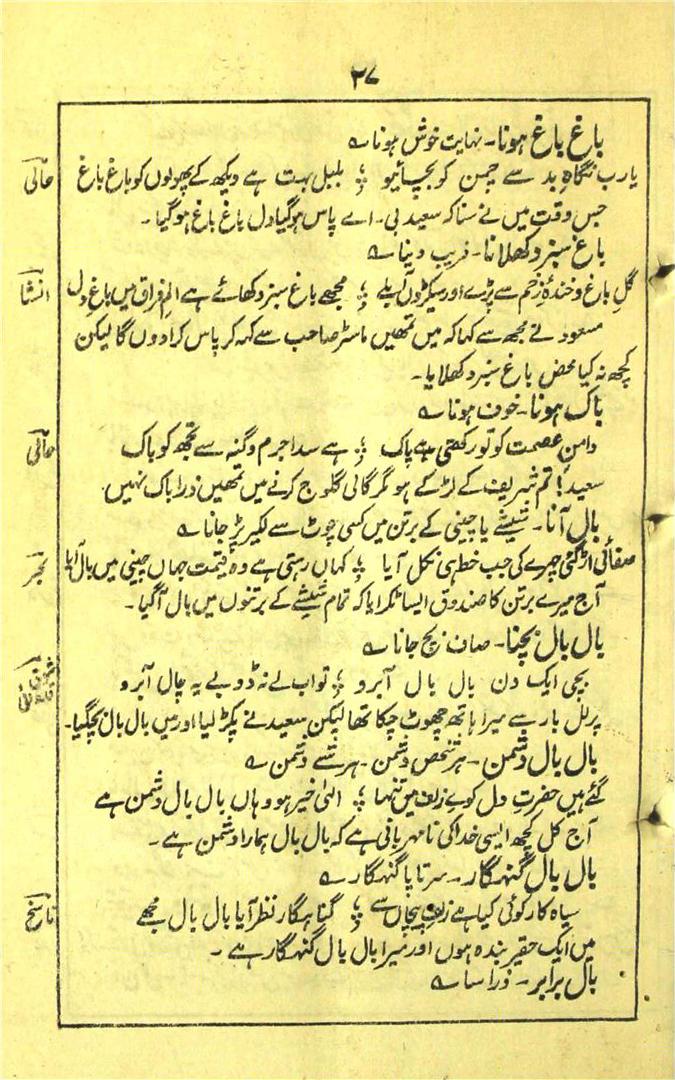 ۳۷
باغ باغ ہونا۔ نہایت خوش ہونا ؎
یارب نگاہِ بد سے چمن کو بچائیو ؛ بلبل بہت ہے دیکھ کے پھولوں کو باغ باغ حالی
جس وقت میں نے سنا کہ سعید بی۔ اے پاس ہوگیا دل باغ باغ ہوگیا۔
باغ سبز دکھلانا۔ فریب دینا ؎
گلِ باغ و خندۂ زخم سے پڑے اور سیکڑوں آبلے ؛ مجھے باغ سبز دکھائے ہے الم فراق میں باغِ دل انشا
مسعود نے مجھ سے کہا کہ میں تمھیں ماسٹر صاحب سے کہہ کر پاس کرادوں گا لیکن
کچھ نہ کیا محض باغ سبز دکھلایا۔
باک ہونا۔ خوف ہونا ؎
دامنِ عصمت کو تو رکھتی ہے پاک ؛ ہے سدا جرم و گنہ سے تجھ کو باک حالی
سعید! تم شریف کے لڑکے ہو مگر گالی گلوج کرنے میں تمھیں ذرا باک نہیں۔
بال آنا۔ شیشے یا چینی کے برتن میں کسی چوٹ سے لکیر پڑ جانا ؎
صفائی اڑ گئی چہرے کی جب خط ہی نکل آیا ؛ کہاں رہتی ہے وہ قیمت جہاں چینی میں بال آیا
آج میرے برتن کا صندوق ایسا ٹکرایا کہ تمام شیشے کے برتنوں میں بال آگیا۔
بال بال بچنا۔ صاف بچ جانا ؎
بچی ایک دن بال بال آبرو ؛ تو اب لے نہ ڈوبے یہ چال آبرو شوق قدوائی
پرلل بار سے میرا ہاتھ چھوٹ چکا تھا لیکن سعید نے پکڑ لیا اور میں بال بال بچگیا۔
بال بال دشمن۔ ہر شخص دشمن۔ ہر شے دشمن ؎
گئے ہیں حضرتِ دل کوئے زلف میں تنہا ؛ الٰہی خیر ہو وہاں بال بال دشمن ہے
آج کل کچھ ایسی خدا کی نامہربانی ہے کہ بال بال ہمارا دشمن ہے۔
بال بال گنہگار۔ سرتاپا گنہگار ؎
سیاہ کار کوئی کیا ہے زلفِ پیچاں سے ؛ گناہگار نظر آیا بال بال مجھے ناسخ
میں ایک حقیر بندہ ہوں اور میرا بال بال گنہگار ہے۔
بال برابر۔ ذرا سا ؎